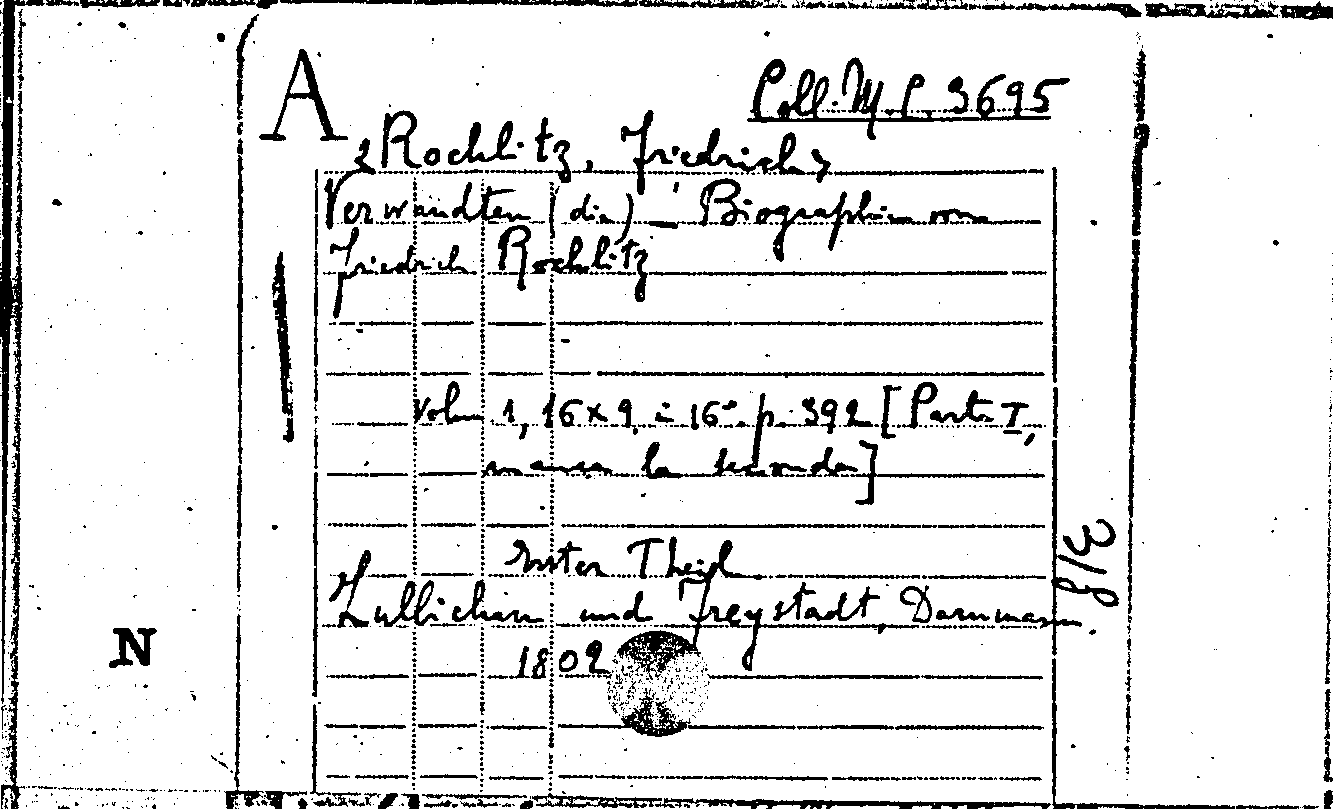 A
Coll. M. P. 3695
<Rochlitz, Friedrich>
Verwandten (die) – Biographien von
Friedrich Rochlitz
Volu 1, 16x9, in 16º. p. 392 [Parte I,
manca la seconda]
Erster Theil
Zullichau und Freystadt, Darnmann.
1802
3/8
N